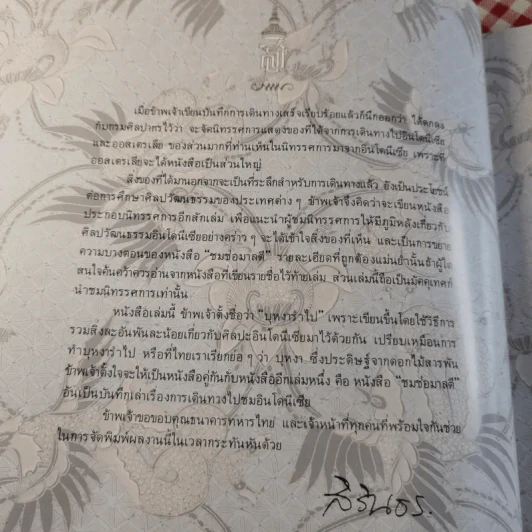 เมื่อข้าพเจ้าเขียนบันทึกการเดินทางเสร็จเรียบร้อยแล้วก็นึกออกว่า ได้ตกลง
กับกรมศิลปากรไว้ว่า จะจัดนิทรรศการแสดงของที่ได้จากการเดินทางไปอินโดนีเซีย
และออสเตรเลีย ของส่วนมากที่ท่านเห็นในนิทรรศการมาจากอินโดนีเซีย เพราะที่
ออสเตรเลียจะได้หนังสือเป็นส่วนใหญ่
สิ่งของที่ได้มานอกจากจะเป็นที่ระลึกสำหรับการเดินทางแล้ว ยังเป็นประโยชน์
ต่อการศึกษาศิลปวัฒนธรรมของประเทศต่าง ๆ ข้าพเจ้าจึงคิดว่าจะเขียนหนังสือ
ประกอบนิทรรศการอีกสักเล่ม เพื่อแนะนำผู้ชมนิทรรศการให้มีภูมิหลังเกี่ยวกับ
ศิลปวัฒนธรรมอินโดนีเซียอย่างคร่าว ๆ จะได้เข้าใจสิ่งของที่เห็น และเป็นการขยาย
ความบางตอนของหนังสือ "ชมช่อมาลตี" รายละเอียดที่ถูกต้องแม่นยำนั้นถ้าผู้ใด
สนใจค้นคว้าควรอ่านจากหนังสือที่เขียนรายชื่อไว้ท้ายเล่ม ส่วนเล่มนี้ถือเป็นมัคคุเทศก์
นำชมนิทรรศการเท่านั้น
หนังสือเล่มนี้ ข้าพเจ้าตั้งชื่อว่า "บุหงารำไป" เพราะเขียนขึ้นโดยใช้วิธีการ
รวมสิ่งละอันพันละน้อยเกี่ยวกับศิลปะอินโดนีเซียมาไว้ด้วยกัน เปรียบเหมือนการ
ทำบุหงารำไป หรือที่ไทยเราเรียกย่อ ๆ ว่า บุหงา ซึ่งประดิษฐ์จากดอกไม้สารพัน
ข้าพเจ้าตั้งใจจะให้เป็นหนังสือคู่กันกับหนังสืออีกเล่มหนึ่ง คือ หนังสือ "ชมช่อมาลตี"
อันเป็นบันทึกเล่าเรื่องการเดินทางไปชมอินโดนีเซีย
ข้าพเจ้าขอขอบคุณธนาคารทหารไทย และเจ้าหน้าที่ทุกคนที่พร้อมใจกันช่วย
ในการจัดพิมพ์ผลงานนี้ในเวลากระทันหันด้วย
สิรินธร.